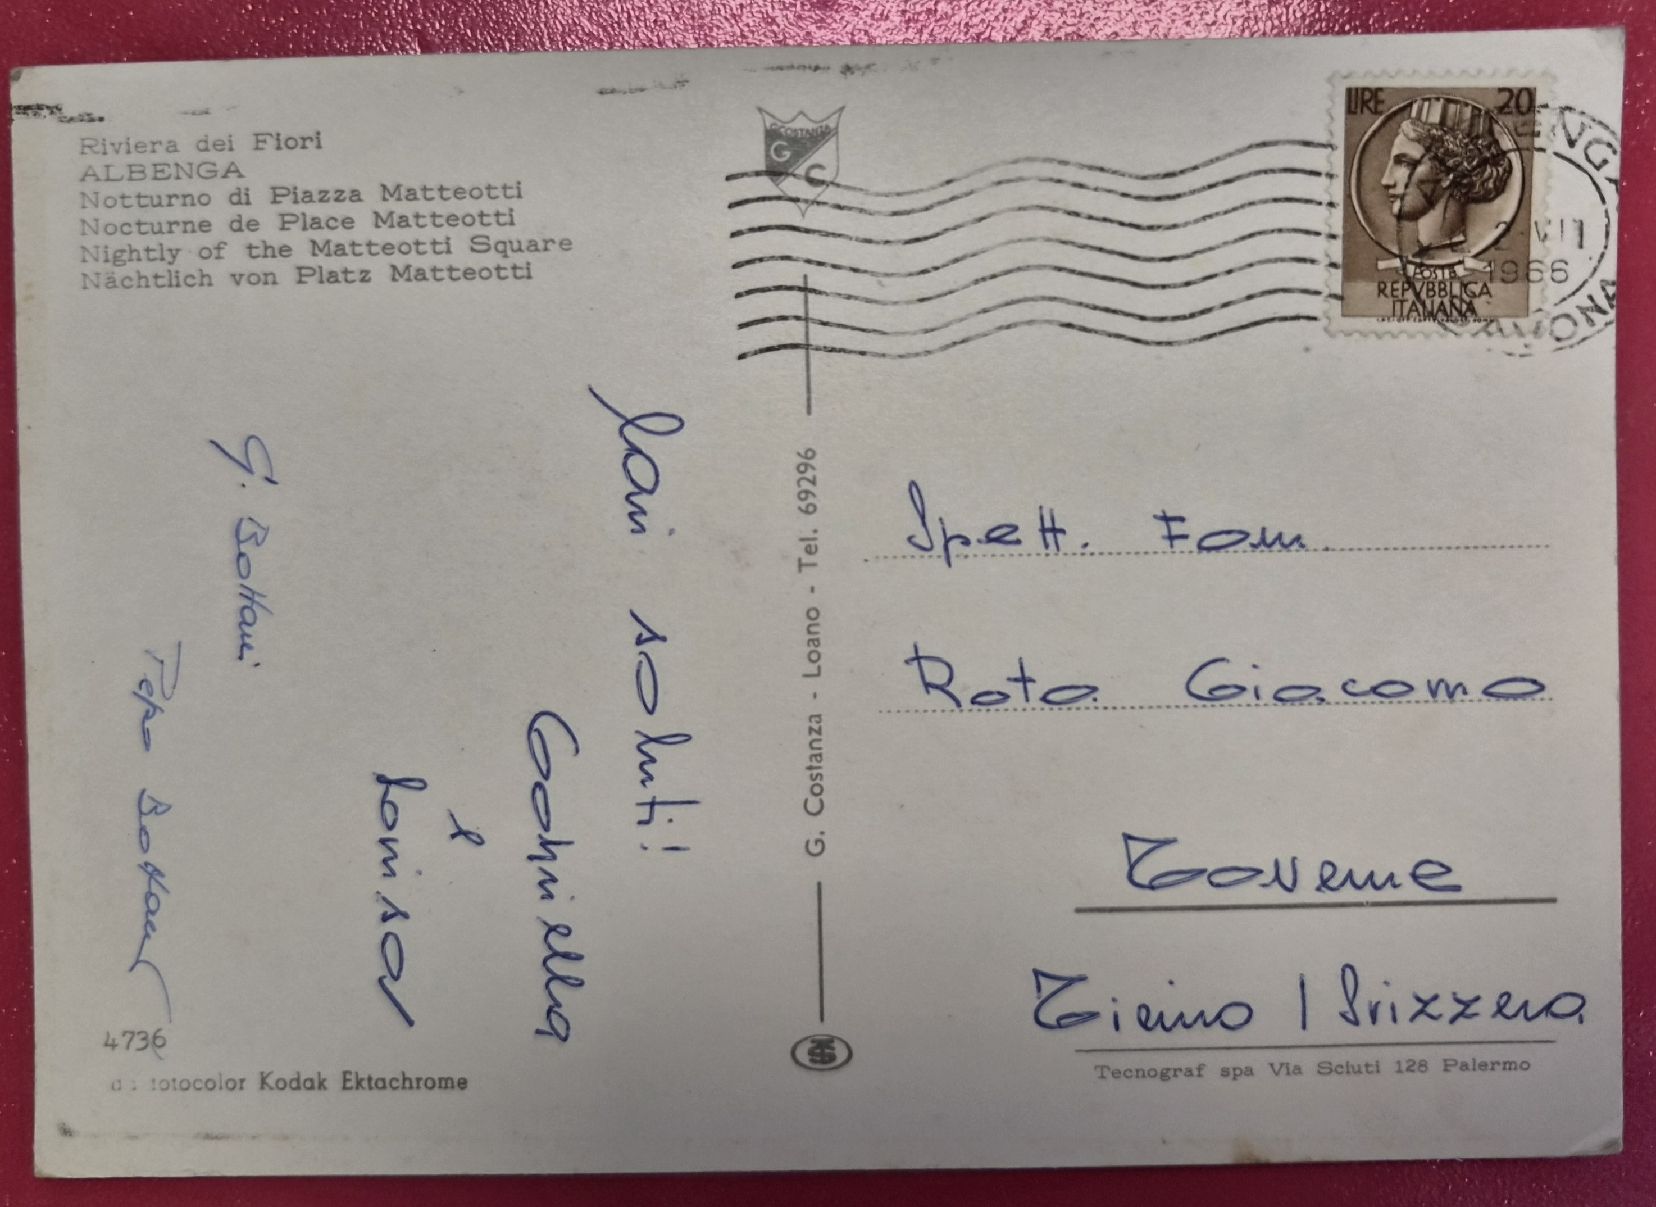 Riviera dei Fiori
ALBENGA
Notturno di Piazza Matteotti
Nocturne de Place Matteotti
Nightly of the Matteotti Square
Nächtlich von Platz Matteotti
G. COSTANZA
G C
LIRE 20
POSTE
REPVBBLICA
ITALIANA
ENGA
2 VII
1966
SAVONA
Cari saluti!
Gabriella
e
Louisa
G. Bottani
Pepa Bottani
G. Costanza - Loano - Tel. 69296
Spett. Fam.
Rota Giacomo
Taverne
Ticino / Svizzera
4736
da fotocolor Kodak Ektachrome
Tecnograf spa Via Sciuti 128 Palermo